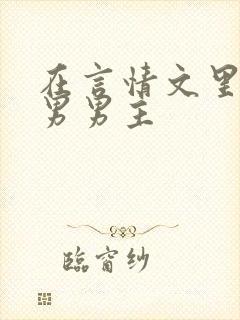 在言情文里
男男主
臨窗紗